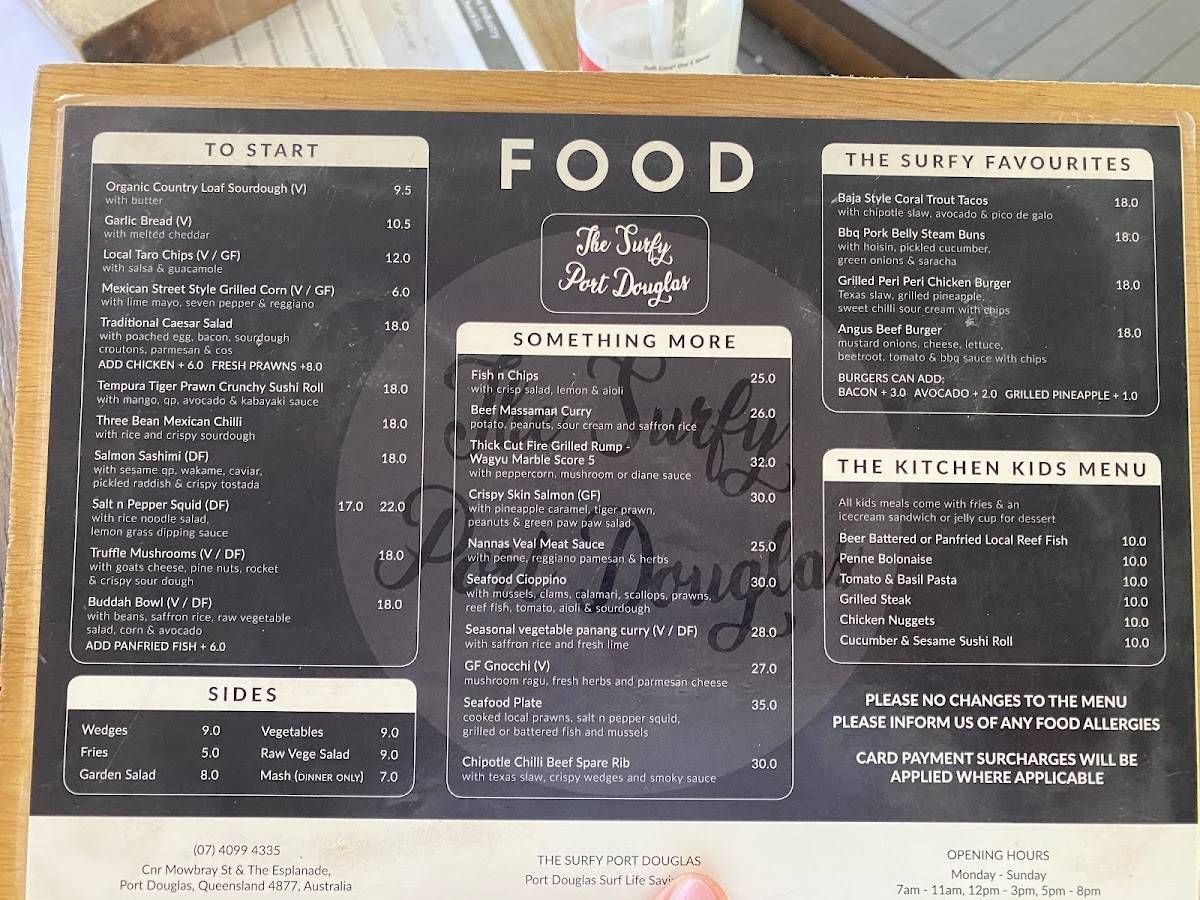 FOOD
The Surfy
Port Douglas
TO START
Organic Country Loaf Sourdough (V) 9.5
with butter
Garlic Bread (V) 10.5
with melted cheddar
Local Taro Chips (V / GF) 12.0
with salsa & guacamole
Mexican Street Style Grilled Corn (V / GF) 6.0
with lime mayo, seven pepper & reggiano
Traditional Caesar Salad 18.0
with poached egg, bacon, sourdough
croutons, parmesan & cos
ADD CHICKEN + 6.0 FRESH PRAWNS +8.0
Tempura Tiger Prawn Crunchy Sushi Roll 18.0
with mango, qp, avocado & kabayaki sauce
Three Bean Mexican Chilli 18.0
with rice and crispy sourdough
Salmon Sashimi (DF) 18.0
with sesame qp, wakame, caviar,
pickled raddish & crispy tostada
Salt n Pepper Squid (DF) 17.0 22.0
with rice noodle salad,
lemon grass dipping sauce
Truffle Mushrooms (V / DF) 18.0
with goats cheese, pine nuts, rocket
& crispy sour dough
Buddah Bowl (V / DF) 18.0
with beans, saffron rice, raw vegetable
salad, corn & avocado
ADD PANFRIED FISH + 6.0
SIDES
Wedges 9.0 Vegetables 9.0
Fries 5.0 Raw Vege Salad 9.0
Garden Salad 8.0 Mash (DINNER ONLY) 7.0
SOMETHING MORE
Fish n Chips 25.0
with crisp salad, lemon & aioli
Beef Massaman Curry 26.0
potato, peanuts, sour cream and saffron rice
Thick Cut Fire Grilled Rump -
Wagyu Marble Score 5 32.0
with peppercorn, mushroom or diane sauce
Crispy Skin Salmon (GF) 30.0
with pineapple caramel, tiger prawn,
peanuts & green paw paw salad
Nannas Veal Meat Sauce 25.0
with penne, reggiano pamesan & herbs
Seafood Cioppino 30.0
with mussels, clams, calamari, scallops, prawns,
reef fish, tomato, aioli & sourdough
Seasonal vegetable panang curry (V / DF) 28.0
with saffron rice and fresh lime
GF Gnocchi (V) 27.0
mushroom ragu, fresh herbs and parmesan cheese
Seafood Plate 35.0
cooked local prawns, salt n pepper squid,
grilled or battered fish and mussels
Chipotle Chilli Beef Spare Rib 30.0
with texas slaw, crispy wedges and smoky sauce
The Surfy
Port Douglas
THE SURFY FAVOURITES
Baja Style Coral Trout Tacos 18.0
with chipotle slaw, avocado & pico de galo
Bbq Pork Belly Steam Buns 18.0
with hoisin, pickled cucumber,
green onions & saracha
Grilled Peri Peri Chicken Burger 18.0
Texas slaw, grilled pineapple,
sweet chilli sour cream with chips
Angus Beef Burger 18.0
mustard onions, cheese, lettuce,
beetroot, tomato & bbq sauce with chips
BURGERS CAN ADD:
BACON + 3.0 AVOCADO + 2.0 GRILLED PINEAPPLE + 1.0
THE KITCHEN KIDS MENU
All kids meals come with fries & an
icecream sandwich or jelly cup for dessert
Beer Battered or Panfried Local Reef Fish 10.0
Penne Bolonaise 10.0
Tomato & Basil Pasta 10.0
Grilled Steak 10.0
Chicken Nuggets 10.0
Cucumber & Sesame Sushi Roll 10.0
PLEASE NO CHANGES TO THE MENU
PLEASE INFORM US OF ANY FOOD ALLERGIES
CARD PAYMENT SURCHARGES WILL BE
APPLIED WHERE APPLICABLE
(07) 4099 4335
Cnr Mowbray St & The Esplanade,
Port Douglas, Queensland 4877, Australia
THE SURFY PORT DOUGLAS
Port Douglas Surf Life
OPENING HOURS
Monday - Sunday
7am - 11am, 12pm - 3pm, 5pm - 8pm